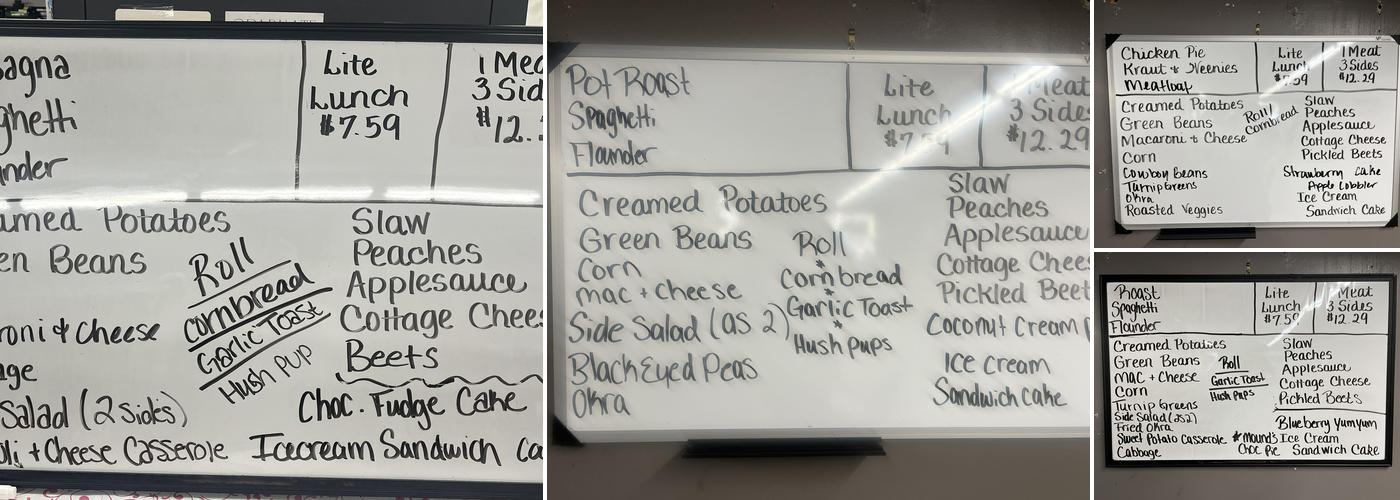 agna
ghetti
nder
Lite
Lunch
$7.59
1 Mea
3 Sid
$12.
amed Potatoes
en Beans
roni & Cheese
age
Salad (2 Sides)
oli + Cheese Casserole
Roll
Cornbread
Garlic Toast
Hush Pup
Slaw
Peaches
Applesauce
Cottage Chees
Beets
Choc. Fudge Cake
Icecream Sandwich Ca
Pot Roast
Spaghetti
Flounder
Lite
Lunch
$7.59
1 Meat
3 Sides
$12.29
Creamed Potatoes
Green Beans
Corn
mac + cheese
Side Salad (as 2)
BlackEyed Peas
Okra
Roll
*
Cornbread
*
Garlic Toast
*
Hush Pups
Slaw
Peaches
Applesauce
Cottage Chees
Pickled Beet
Coconut Cream P
Ice cream
Sandwich cake
Chicken Pie
Kraut & Weenies
Meatloaf
Lite
Lunch
$7.59
1 Meat
3 Sides
$12.29
Creamed Potatoes
Green Beans
Macaroni & Cheese
Corn
Cowboy Beans
Turnip Greens
Okra
Roasted Veggies
Roll/
Cornbread
Slaw
Peaches
Applesauce
Cottage Cheese
Pickled Beets
Strawberry Cake
Apple Cobbler
Ice Cream
Sandwich Cake
Roast
Spaghetti
Flounder
Lite
Lunch
$7.59
1 Meat
3 Sides
$12.29
Creamed Potatoes
Green Beans
Mac + Cheese
Corn
Turnip Greens
Side Salad (as 2)
Fried Okra
Sweet Potato Casserole
Cabbage
Roll
Garlic Toast
Hush Pups
Slaw
Peaches
Applesauce
Cottage Cheese
Pickled Beets
Blueberry Yum Yum
*Mounds
Choc Pie
Ice Cream
Sandwich Cake